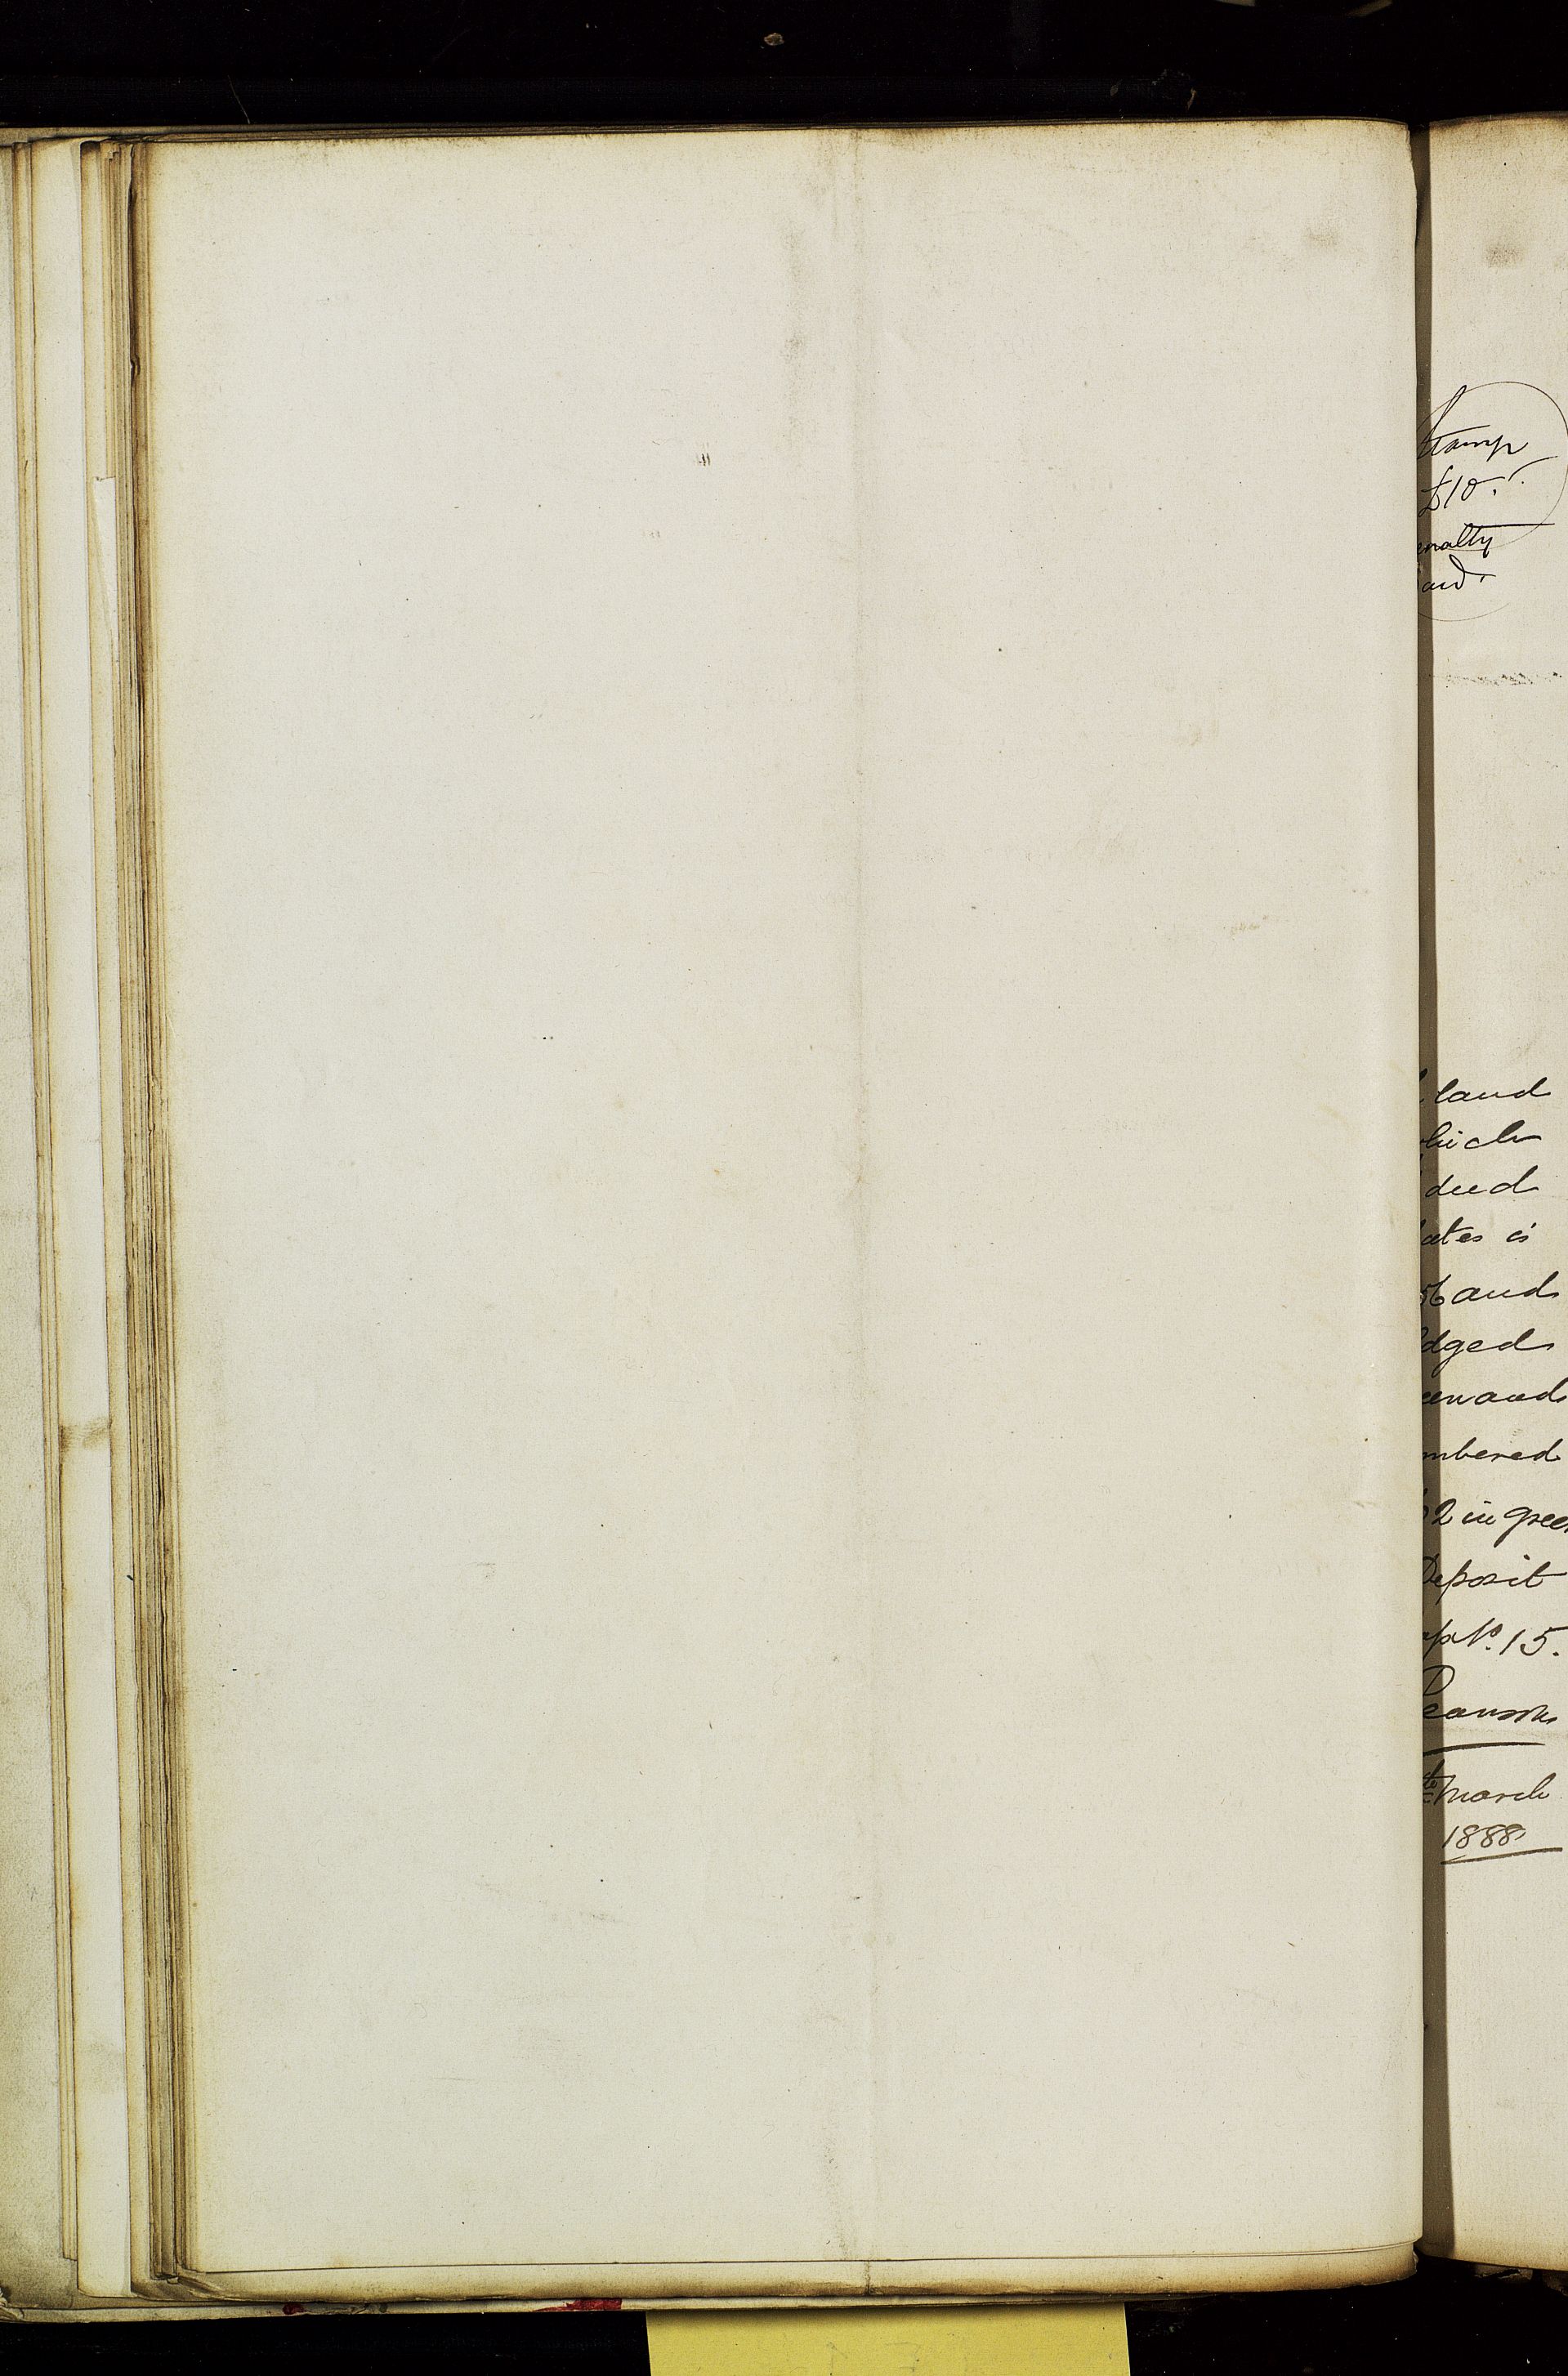 Stamp
£10.
enalty
aid.
land
hich
deed
ates is
56 and
dged
een and
mbered
2 in green
Deposit
15.
Pearson
March
1888